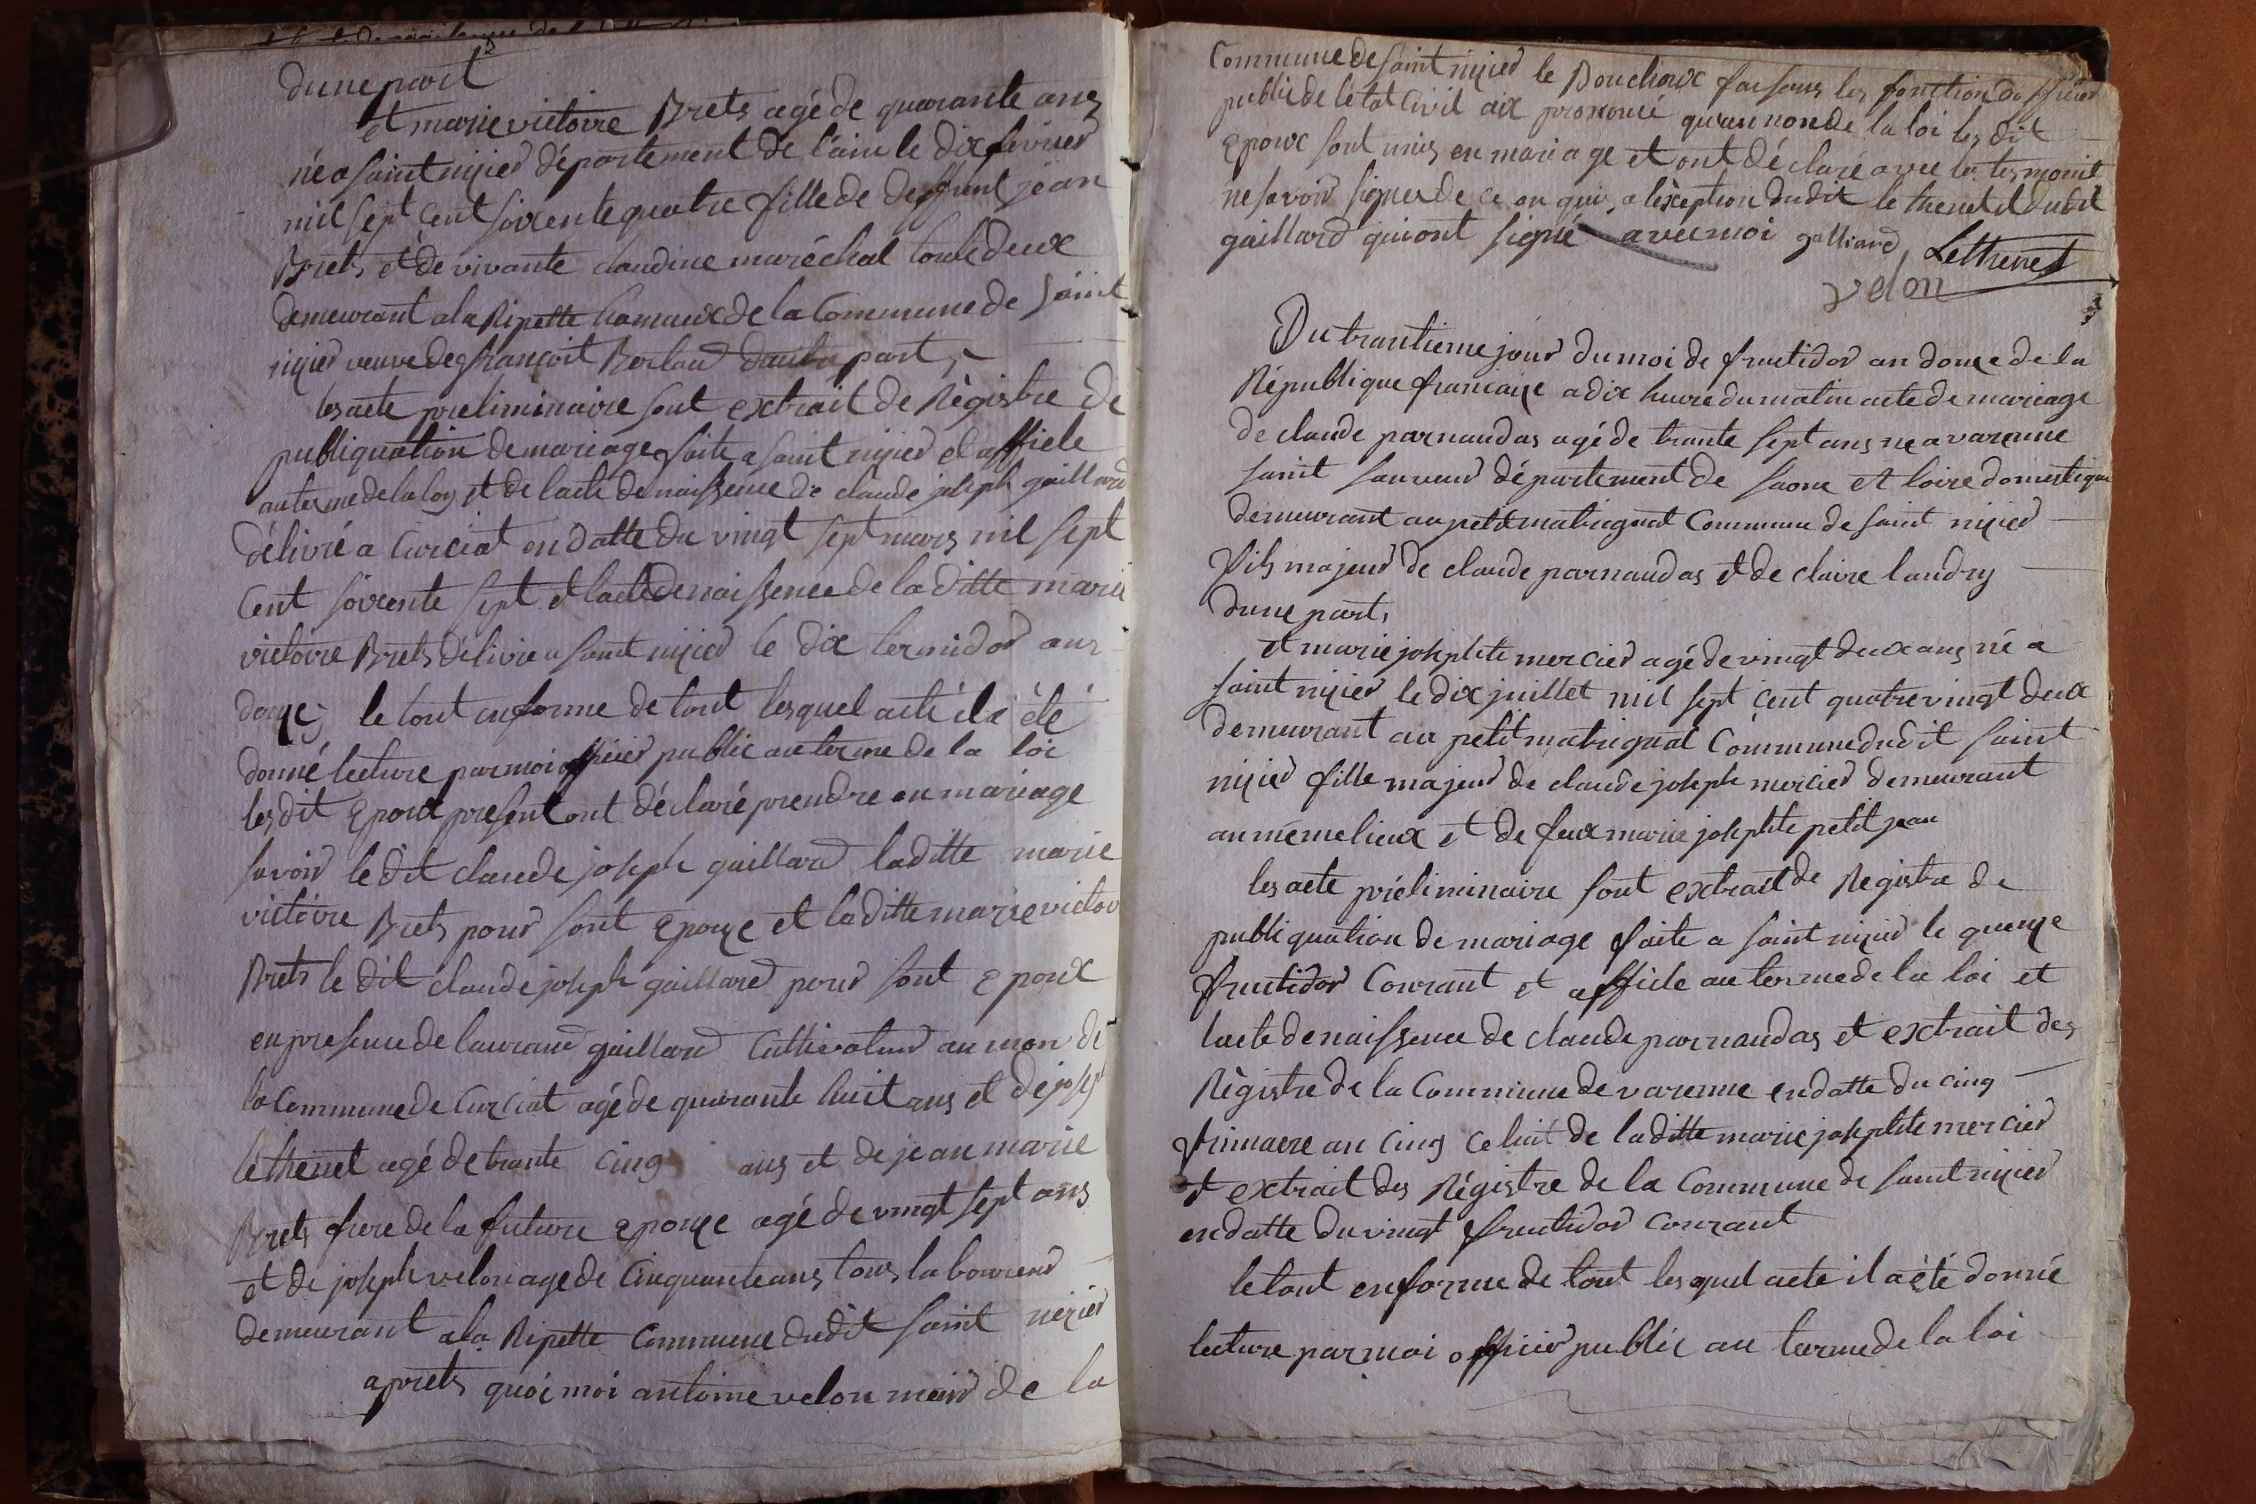 dune part
et marie victoire Brets agé de quarante ans
né a saint nizier département de l'ain le dix fevrier
mil sept cent soixente quatre fille de deffunt jean
Brets et de vivante claudine maréchal touts deux
demeurant a la Ripette hamaux de la Commune de saint
nizier veuve de francoit Borlau part
les acte preliminaire sont extrait de Règistre de
publiquation de mariage faite a saint nizier et affiele
au terme de la loy et de lacte de naissence de claude joseph gaillard
délivré a Curciat en datte du vingt sept mars mil sept
Cent soixente sept et lacte de naissence de la ditte marie
victoire Brets délivre a saint nizier le dix termidor an
douze le tout en forme de tout lesquel acte il a été
donné lecture par moi officier public au terme de la loi
les dit Epoux present ont déclaré prendre en mariage
savoir le dit claude joseph gaillard la ditte marie
victoire Brets pour sont Epouze et la ditte marie victoir
Brets le dit claude joseph gaillard pour sont Epoux
en presence de laurand gaillard Cultivateur au mon de
la Commune de Curciat agé de quarante huit ans et de joseph
lethenet agé de trante cinq ans et de jean marie
Brets frere de la future Epouze agé de vingt sept ans
et de joseph velon age de Cinquante ans tous laboureur
demeurant a la Ripette Commune dudit saint nizier
aprets quoi moi antoine velon mair de la
Commune de saint nizier le Bouchoux faisans les fonction dofficier
public de létat Civil aix prononcé quau nonde la loi les dit
Epoux sont unis en mariage et ont déclaré avec les tesmoint
ne savoir signer de ce en qui a lèxception dudit lethenet et dudit
gaillard qui ont signé avec moi galliard Lethenet
velon
Du trantieme jour du moi de fructidor an douze de la
République francaize a dix heure du matin acte de mariage
de claude parnaudas agé de trante sept ans ne a varenne
saint sauveur département de saone et loire domestique
demeurant au petit matragnat Commune de saint nizier
fils majeur de claude parnaudas et de claire landry
dune part,
et marie josephte mercier agé de vingt deux ans né a
saint nizier le dix juillet mil sept cent quatre vingt deux
demeurant au petit matragnat Commune dudit saint
nizier fille majeur de claude joseph mercier demeurant
au mémelieux et de feux marie josephte petit jean
les acte préliminaire sont extrait de Registre de
publiquation de mariage faite a saint nizier le quenze
fructidor Courant et affiele au terme de la loi et
lacte de naissence de claude parnaudas et extrait des
Règistre de la Commune de varenne en datte du cinq
frimaere an cinq celuit de la ditte marie josephte mercier
et extrait des Régistre de la Commune de saint nizier
en datte du vingt fructidor Courant
le tout en forme de tout lesquel acte il a été donné
lecture par moi officier public au terme de la loi